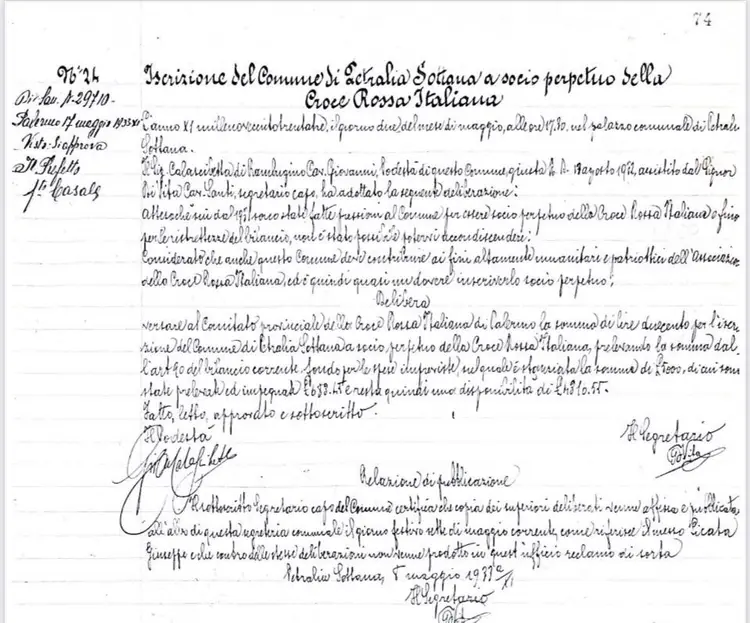 74
N° 24
Iscrizione del Comune di Petralia Sottana a socio perpetuo della
Croce Rossa Italiana
N. 29710.
Palermo 17 maggio 1933 XI
Visto: si approva
Il Prefetto
Casale
L'anno XI millenovecentotrentatre, il giorno due del mese di maggio, alle ore 17.30, nel palazzo comunale di Petralia
Sottana.
Il Sig. Calascibetta di Cav. Giovanni, Podestà di questo Comune, giusta R. D. agosto assistito dal Signor
Di Vita Cav. Santi, segretario capo, ha adottato la seguente deliberazione:
Attesochè sin dal sono state fatte pressioni al Comune per essere socio perpetuo della Croce Rossa Italiana e fino
per le ristrettezze del bilancio, non è stato possibile potervi accondiscendere;
Considerato che anche questo Comune deve contribuire ai fini altamente umanitari e patriottici dell'Associazione
della Croce Rossa Italiana, ed è quindi quasi un dovere inscriverlo socio perpetuo;
Delibera
versare al Comitato provinciale della Croce Rossa Italiana di Palermo la somma di lire duecento per l'iscri-
zione del Comune di Petralia Sottana a socio perpetuo della Croce Rossa Italiana, prelevando la somma dal-
l'art 90 del bilancio corrente, fondo per le spese impreviste, nel quale è stanziata la somma di £5000, di cui sono
state prelevate ed impegnate £688.45 e resta quindi una disponibilità di £4310.55.
Fatto, letto, approvato e sottoscritto.
Il Podestà
Il Segretario
Di Vita
Relazione di pubblicazione
Il sottoscritto Segretario capo del Comune certifica che copia dei superiori deliberati venne affissa e pubblicata
all'albo di questa segreteria comunale il giorno festivo sette di maggio corrente, come riferisce il messo Picata
Giuseppe e che contro delle stesse deliberazioni non venne prodotto in quest'ufficio reclamo di sorta
Petralia Sottana, 8 maggio 1933 XI
Il Segretario